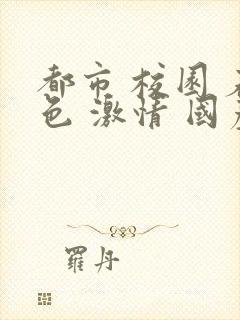 都市 校园
色 激情 國
羅丹